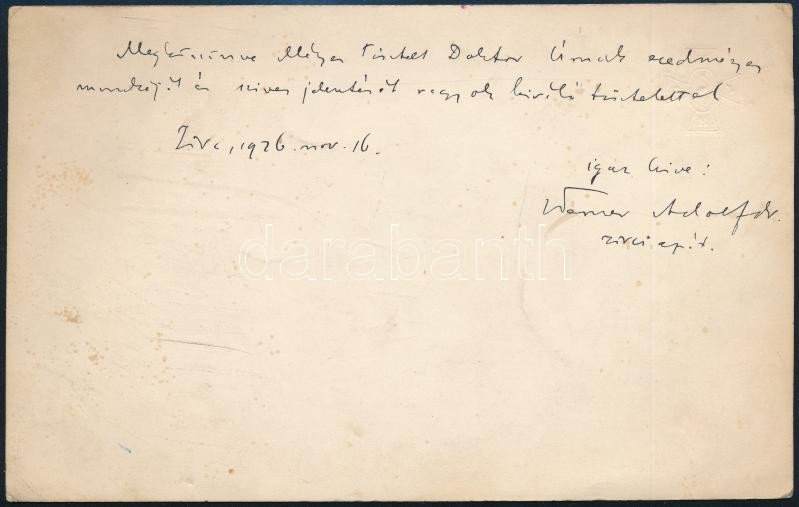 Megköszönve Mélyen Tisztelt Doktor Úrnak eredményes
munkáját és szives jelentését vagyok kiváló tisztelettel
Zirc, 1926. nov. 16.
igaz hive:
Werner Adolf dr.
zirci apát.
darabanth